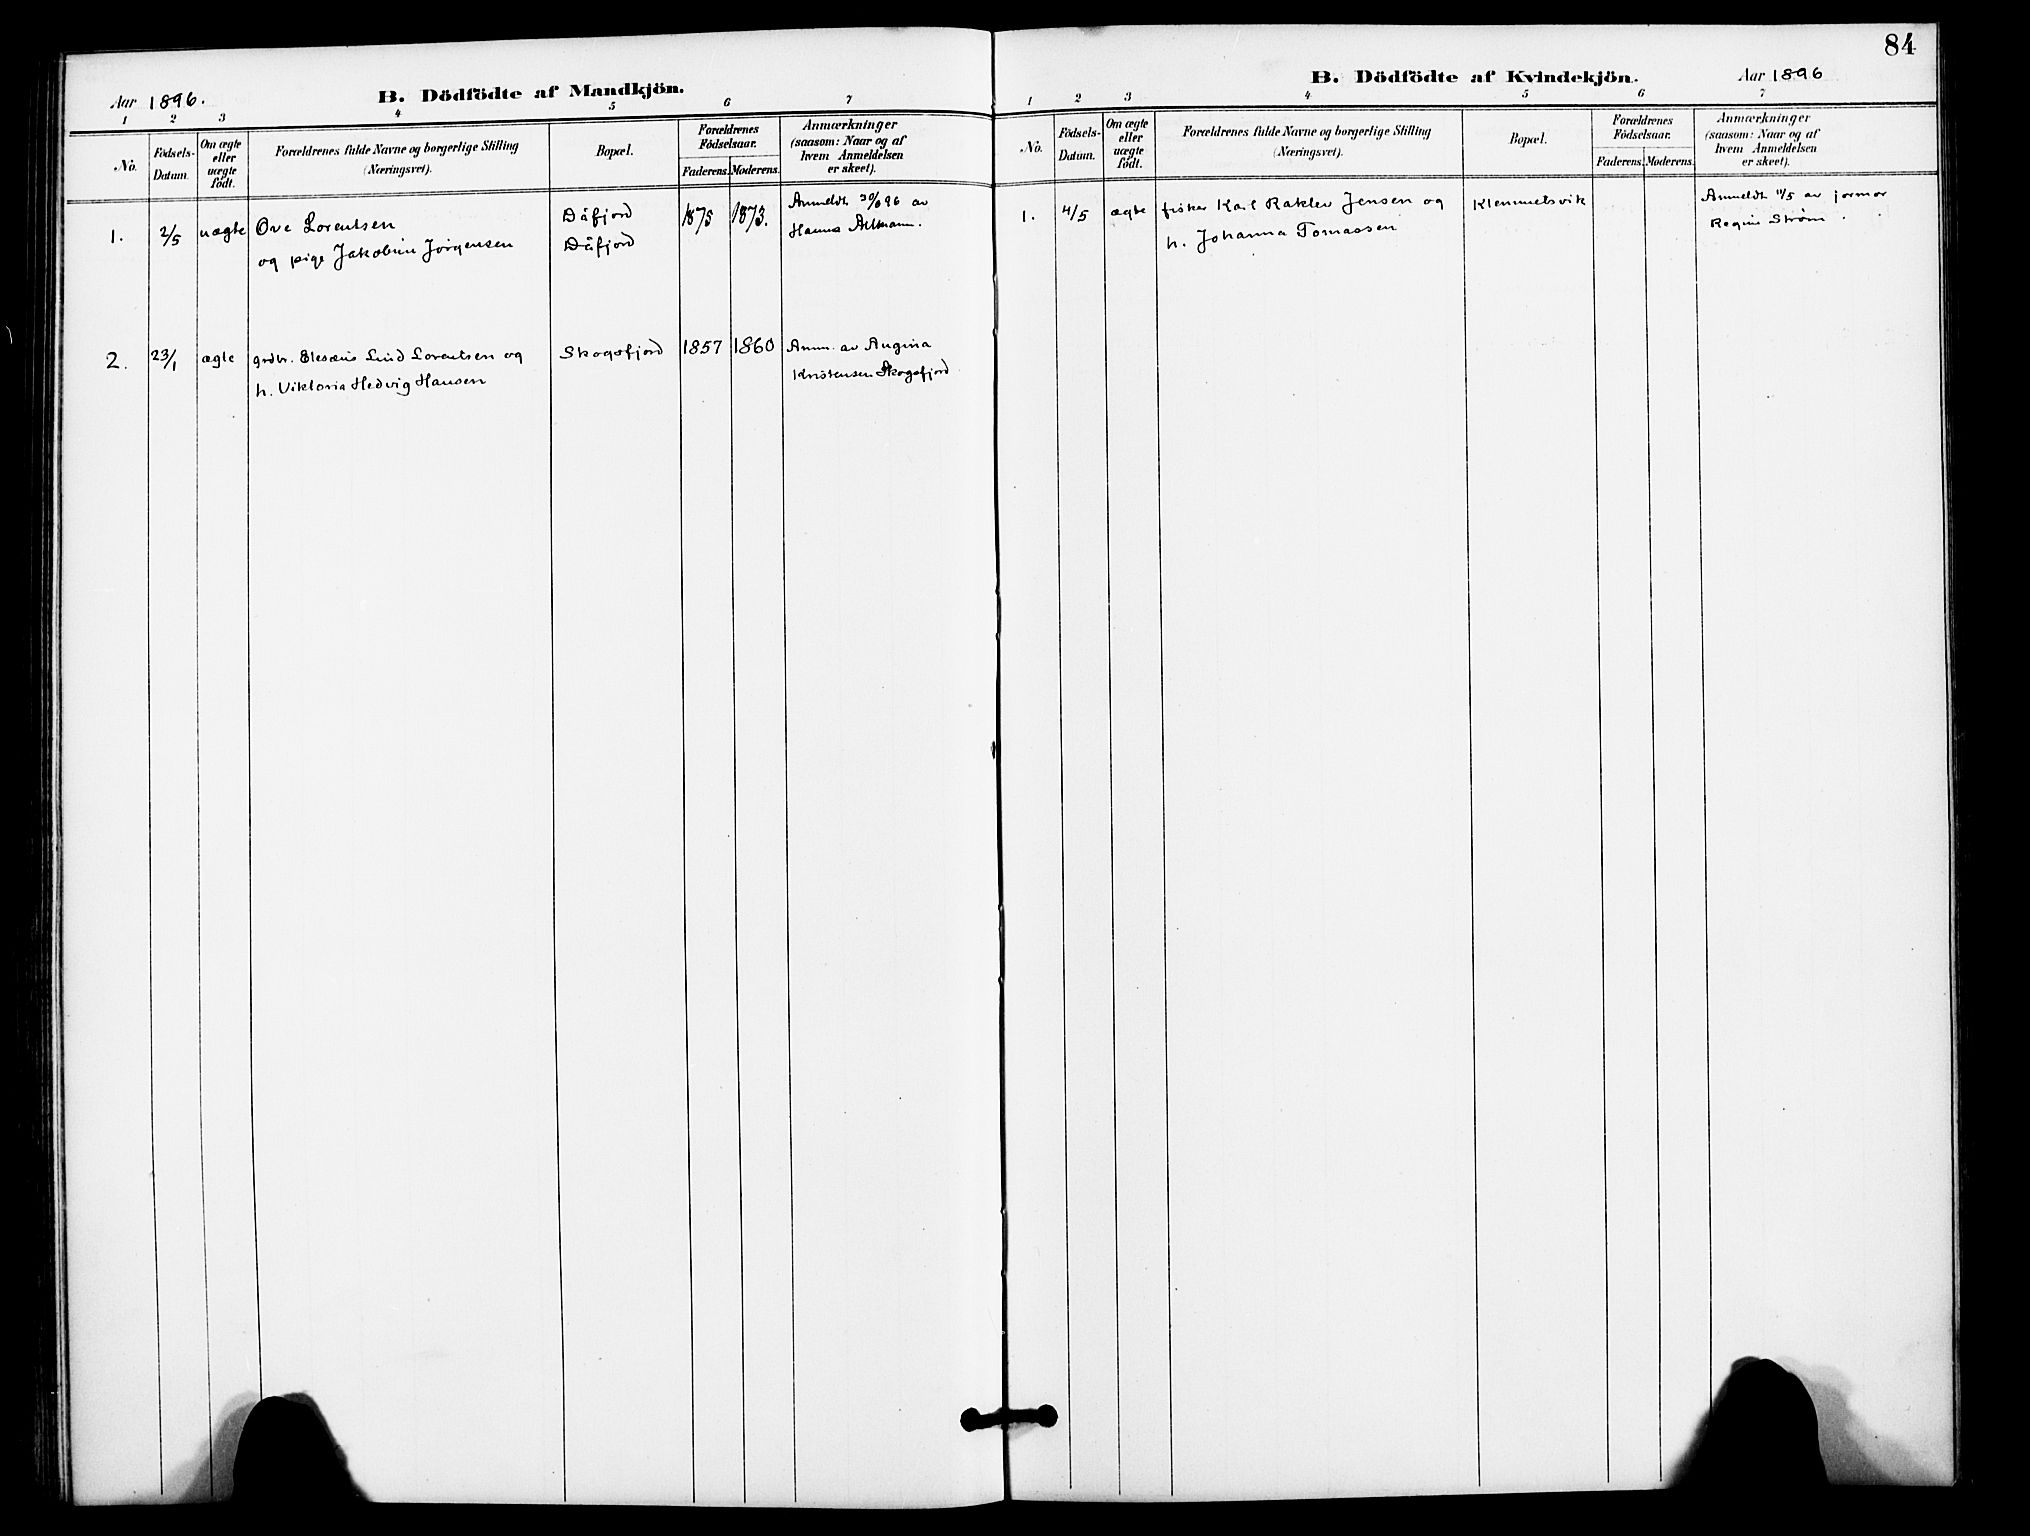 Aar 1896.
B. Dödfödte af Mandkjön.
1 2 3 4 5 6 7
No.
Födsels-Datum.
Om ægte eller uægte födt.
Forældrenes fulde Navne og borgerlige Stilling (Næringsvei).
Bopæl.
Forældrenes Födselsaar.
Faderens. Moderens.
Anmærkninger
(saasom: Naar og af
hvem Anmeldelsen
er skeet).
1. 2/5 uægte Ove Lorentsen Dåfjord 1875 1873. Anmeldt 30/6 96 av
og pige Jakobine Jörgensen Dåfjord Hanna Altmann.
2. 23/1 ægte grdbr. Elesæus Lind Lorentsen og Skogsfjord 1857 1860 Anm. av Augina
h. Viktoria Hedvig Hansen Kristensen Skogsfjord
84
B. Dödfödte af Kvindekjön.
Aar 1896
1 2 3 4 5 6 7
No.
Födsels-Datum.
Om ægte eller uægte födt.
Forældrenes fulde Navne og borgerlige Stilling (Næringsvei).
Bopæl.
Forældrenes Födselsaar.
Faderens. Moderens.
Anmærkninger
(saasom: Naar og af
hvem Anmeldelsen
er skeet).
1. 4/5 ægte fisker Karl Raklev Jensen og Klemmetsvik Anmeldt 11/5 av jormor
h. Johanna Tomassen Regine Strøm.